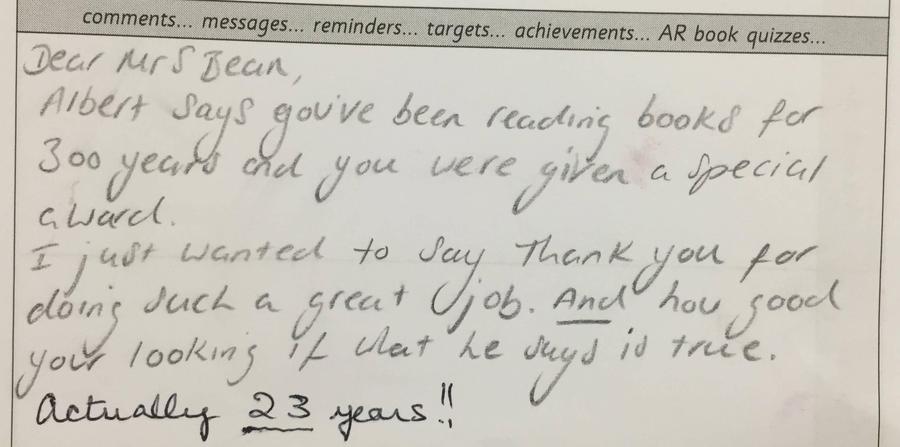 comments... messages... reminders... targets... achievements... AR book quizzes...
Dear Mrs Bean,
Albert says you've been reading books for
300 years and you were given a special
award.
I just wanted to say Thank you for
doing such a great job. And how good
your looking if what he says is true.
Actually 23 years!!